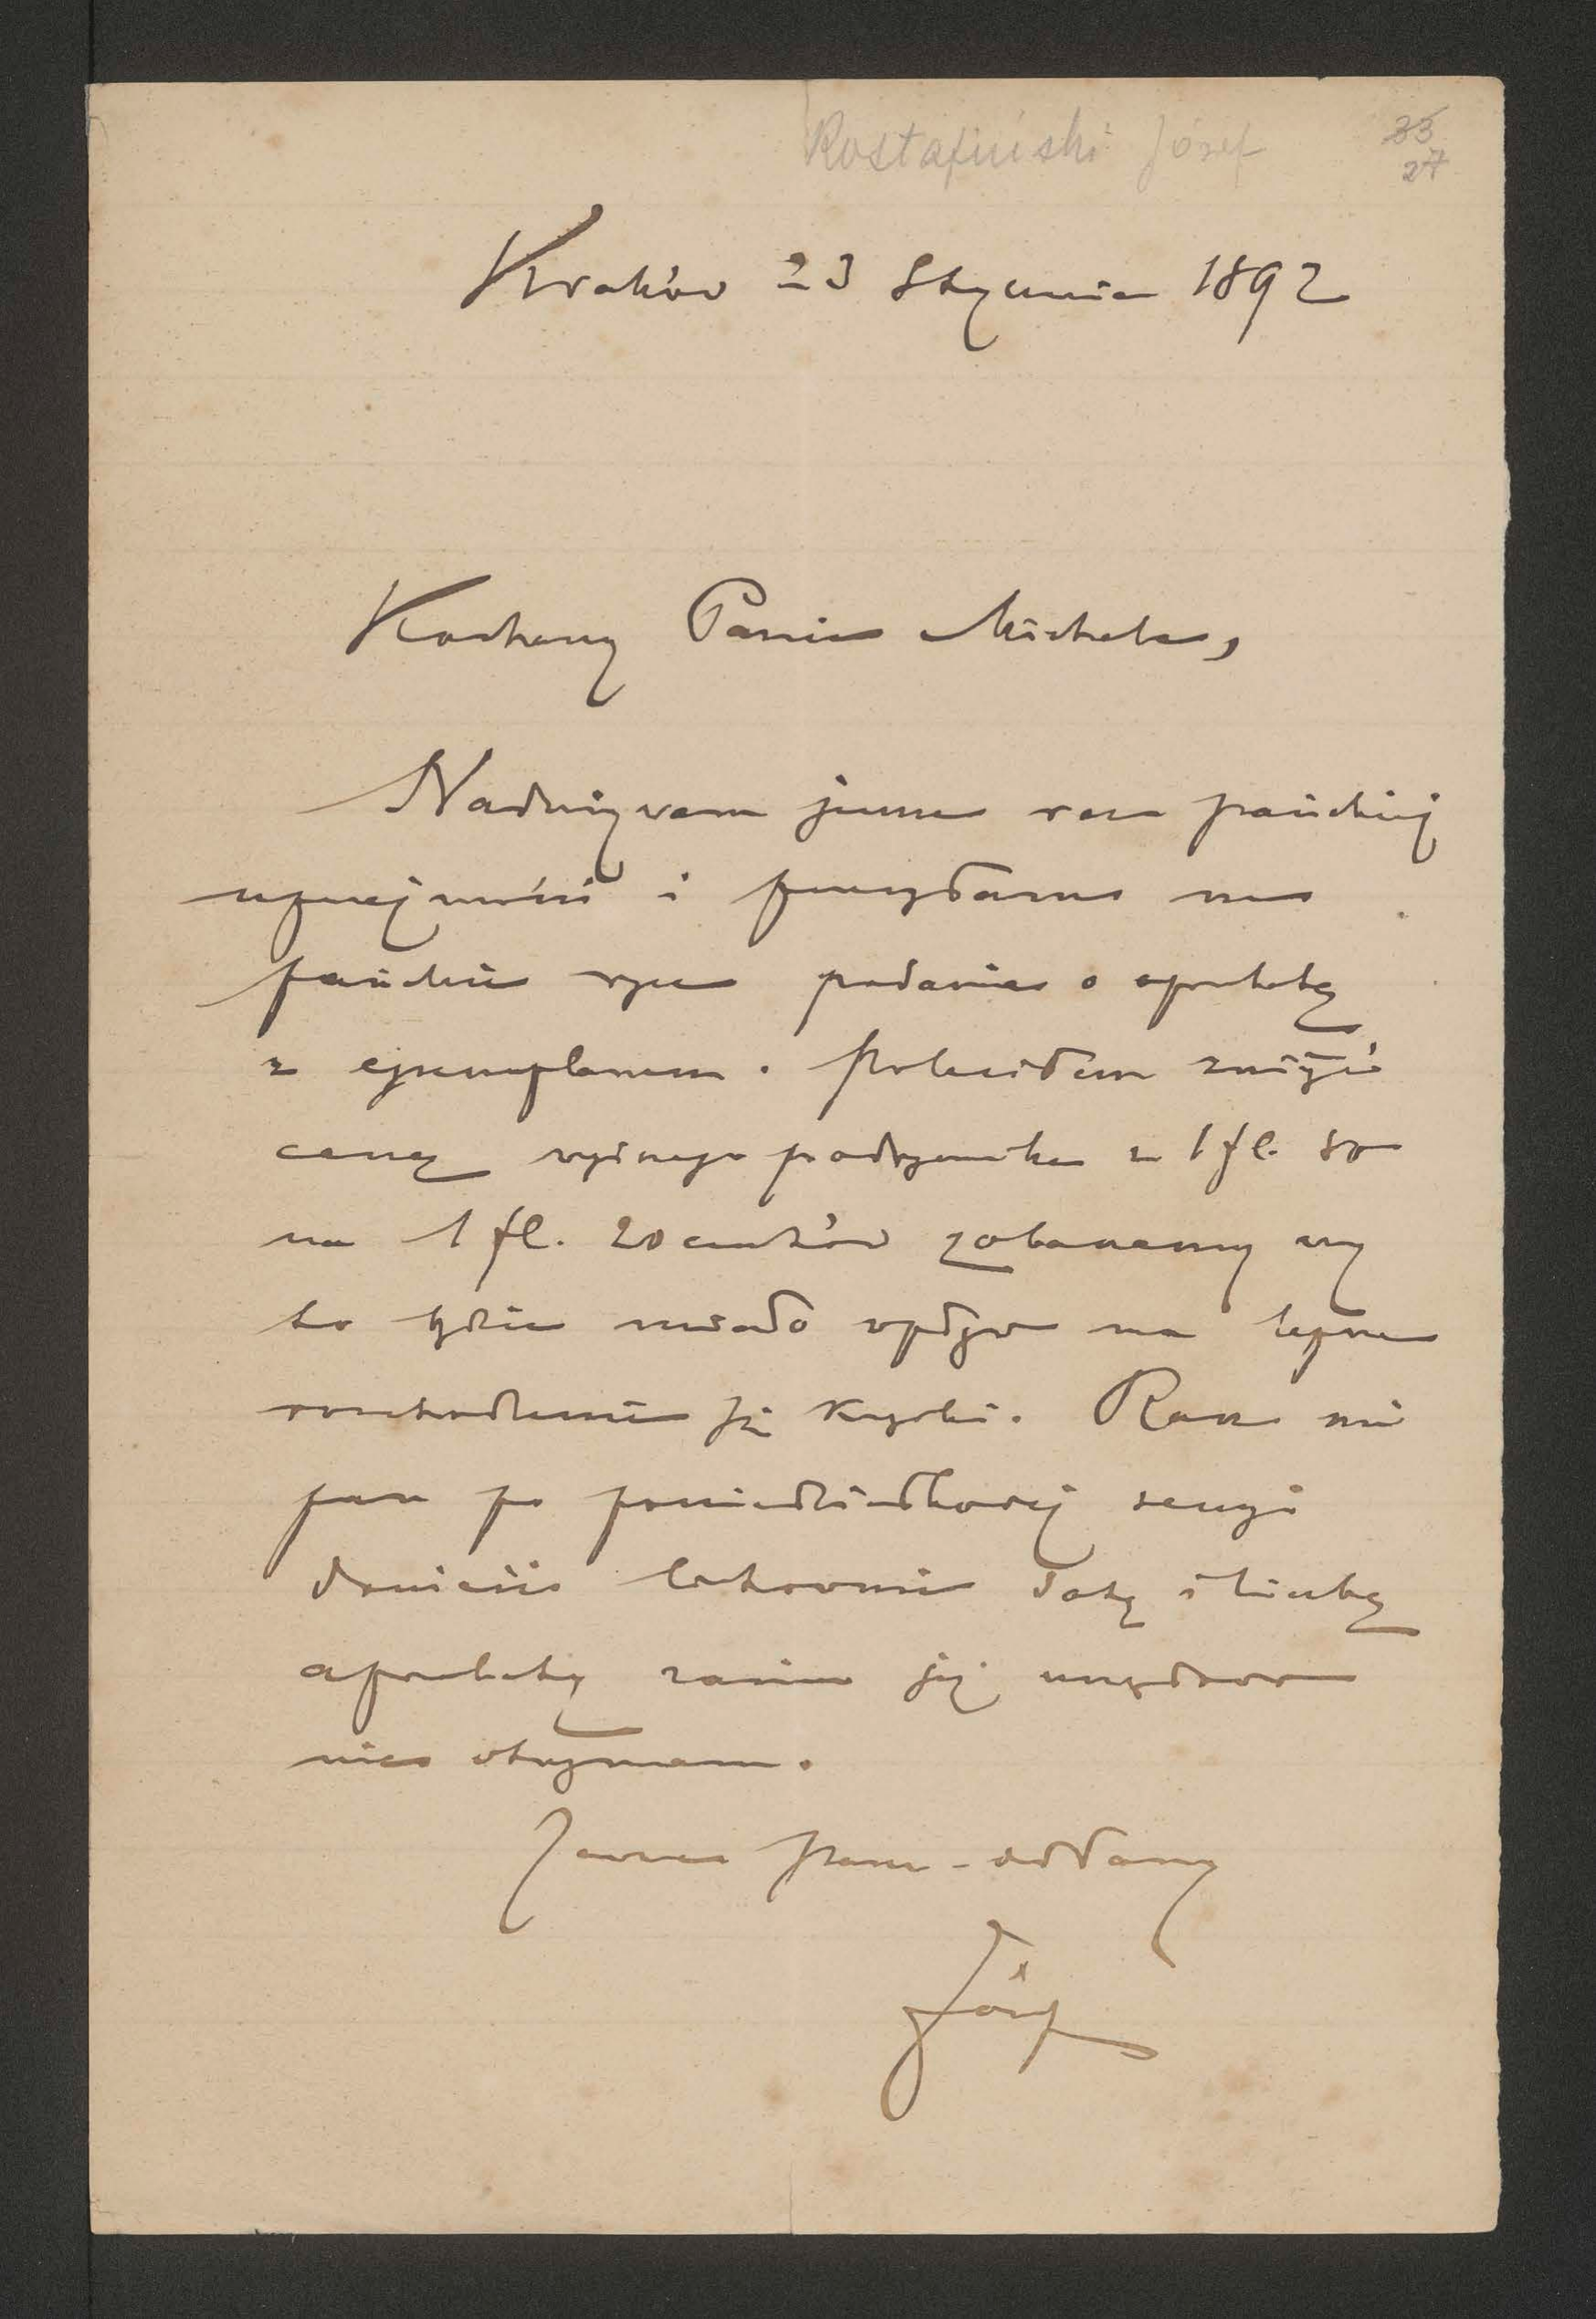 Rostafiński Józef
33
27
Kraków 23 Stycznia 1892
Kochany Panie Michale,
Nadużywam jeszcze raz pańskiej
uprzejmości i przesyłam na
pańskie ręce podanie o aprobatę
z egzemplarzem. Poleciłem zniżyć
cenę wyższego podręcznika z 1 fl.
na 1 fl. 20 centów zobaczymy czy
to będzie miało wpływ na lepsze
rozchodzenie się książki. Racz mi
pan po poniedziałkowej sesyi
donieść łaskawie datę i liczbę
aprobaty zanim ją urzędowo
nie otrzymam.
Zawsze panu oddany
Józef